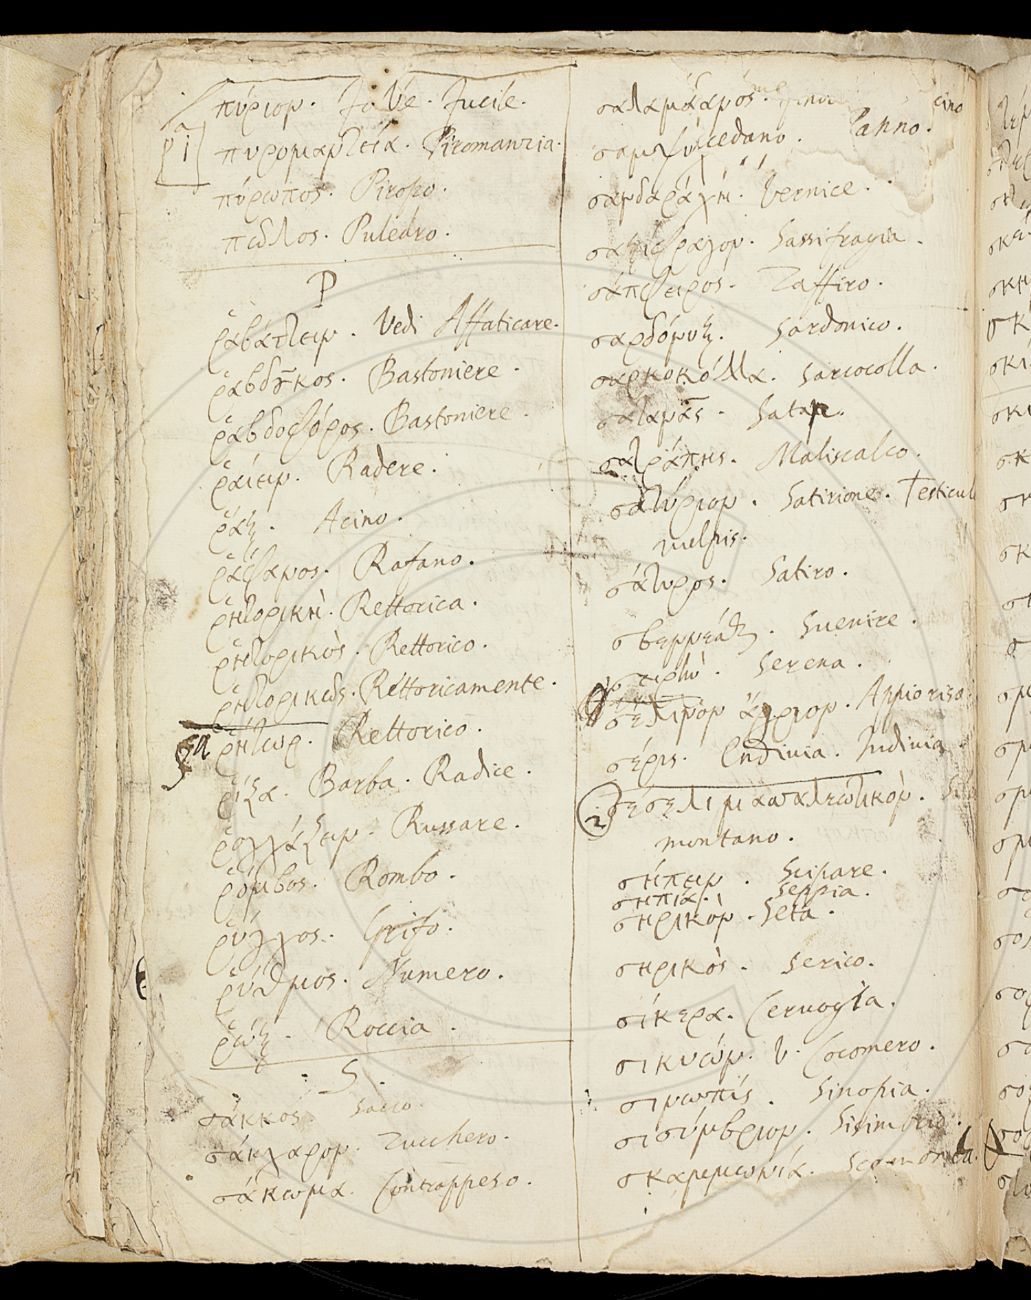 πύριον. Fucile.
πυρομαντεία. Piromanzia.
πύρωπος. Piropo.
πῶλος. Puledro.
Ρ
ῥαβάττειν. Vedi Affaticare.
ῥαβδοῦχος. Bastoniere.
ῥαβδοφόρος. Bastoniere.
ῥαίειν. Radere.
ῥάξ. Acino.
ῥάφανος. Rafano.
ῥητορική. Rettorica.
ῥητορικὸς. Rettorico.
ῥητορικῶς. Rettoricamente.
ῥήτωρ. Rettorico.
ῥίζα. Barba. Radice.
Russare.
ῥόμβος. Rombo.
Grifo.
ῥύθμος. Numero.
ῥώξ. Roccia.
S.
σάκκος Sacco.
σάκχαρον. Zucchero.
σάκωμα. Contrappeso.
Panno.
σανδαράχη. Vernice.
σαξίφραγον. Sassifragia.
σάπφειρος. Zaffiro.
σαρδόνυξ. Sardonico.
σαρκοκόλλα. Sarcocolla.
σατανᾶς.
σατράπης. Maliscalco.
σατύριον. Satirione. Testicul
vulpis.
σάτυρος. Satiro.
Svenire.
Serena.
σέλινον ἄγριον. Appioriso.
σέρις. Endivia. Indivia
σέσελι μασσαλεωτικόν.
montano.
σήπειν.
σηπία. Seppia.
σηρικόν. Seta.
σηρικὸς. Serico.
σίκερα. Cervogia.
σικυών. V. Cocomero.
σινωπίς. Sinopia.
σισύμβριον. Sisimbrio.
σκαμμωνία. Scamonea.